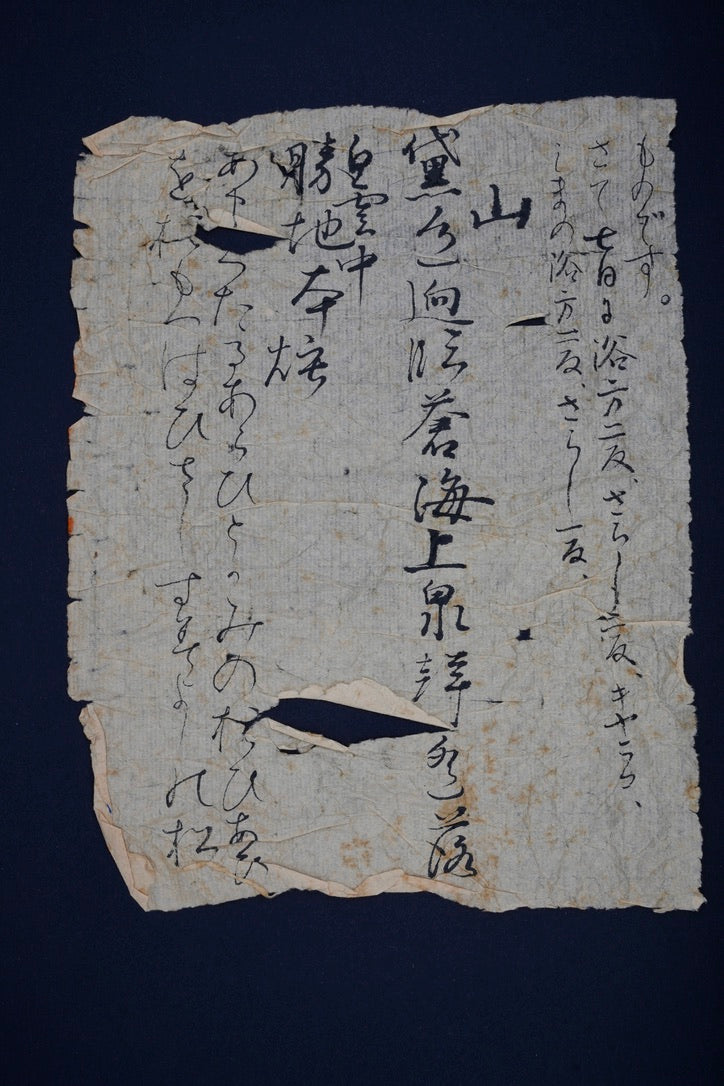 ものです。
さて七日に浴方二反、さらし二反、キヤラコ、
しまの浴方一反、さらし一反、
山
黛色迥臨蒼海上泉聲遙落
白雲中
勝地本
あまくたるあらひとかみのおひあひ
をおもへはひさしすみよしの松